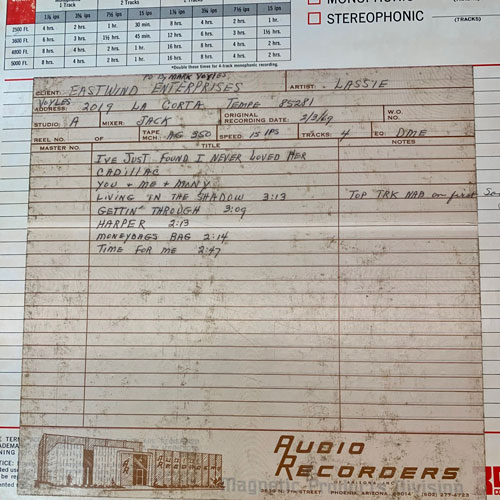 1 Track
2 Tracks
1⅞ ips 3¾ ips 7½ ips 15 ips 1⅞ ips 3¾ ips 7½ ips 15 ips
2500 Ft. 4 hrs. 2 hrs. 1 hr. 30 min. 8 hrs. 4 hrs. 2 hrs. 1 hr.
3600 Ft. 6 hrs. 3 hrs. 1½ hrs. 45 min. 12 hrs. 6 hrs. 3 hrs. 1½ hrs.
4800 Ft. 8 hrs. 4 hrs. 2 hrs. 1 hr. 16 hrs. 8 hrs. 4 hrs. 2 hrs.
5000 Ft. 8 hrs. 4 hrs. 2 hrs. 1 hr. 16 hrs. 8 hrs. 4 hrs. 2 hrs.
*Double these times for 4-track monophonic recording.
MONOPHONIC (TRACKS)
STEREOPHONIC (TRACKS)
TO By MARK VOYLES.
CLIENT: EASTWIND ENTERPRISES ARTIST: LASSIE
VOYLES
ADDRESS: 2019 LA CORTA TEMPE 85281
STUDIO: A MIXER: JACK ORIGINAL RECORDING DATE: 2/3/69 W.O. NO.
REEL NO. OF TAPE MCH.: AG 350 SPEED: 15 IPS TRACKS: 4 EQ: DME
MASTER NO. TITLE NOTES
I'VE JUST FOUND I NEVER LOVED HER
CADILLAC
YOU + ME + MONY
LIVING IN THE SHADOW 3:13 TOP TRK NAB on first
GETTIN' THROUGH 3:09
HARPER 2:13
MONEYBAGS BAG 2:14
TIME FOR ME 2:47
AUDIO
RECORDERS
3830 N. 7TH STREET PHOENIX, ARIZONA 85014 (602) 277-4723
Magnetic Products Division